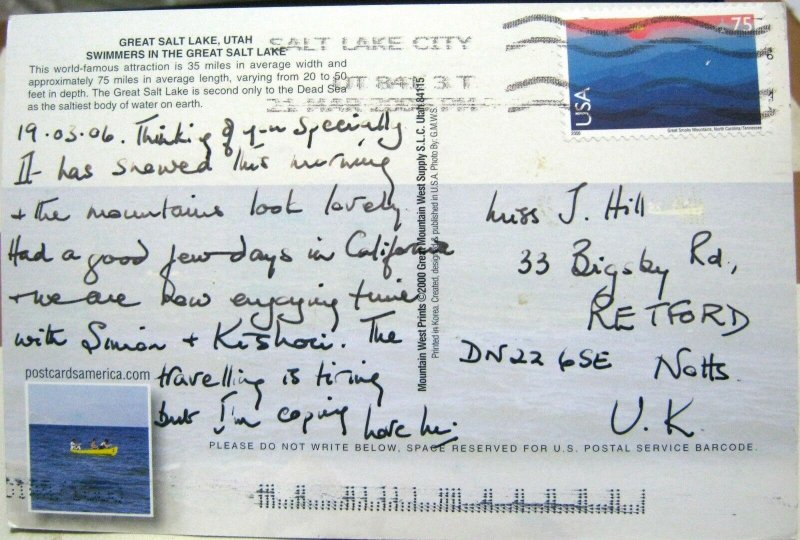 GREAT SALT LAKE, UTAH
SWIMMERS IN THE GREAT SALT LAKE
This world-famous attraction is 35 miles in average width and
approximately 75 miles in average length, varying from 20 to 50
feet in depth. The Great Salt Lake is second only to the Dead Sea
as the saltiest body of water on earth.
19.03.06. Thinking of you specially
It has snowed this morning
+ the mountains look lovely.
Had a good few days in California
+ we are now enjoying time
with Simon + Kishori. The
travelling is tiring
but I'm coping love
postcardsamerica.com
Mountain West Prints ©2000 Great Mountain West Supply S.L.C. Utah 84115
Printed in Korea. Created, designed & published in U.S.A. Photo By: G.M.W.S.
SALT LAKE CITY
UT 841 3 T
21 MAR PM
75
USA
2006
Great Smoky Mountains, North Carolina/Tennessee
Miss J. Hill
33 Bigsby Rd.,
RETFORD
DN22 6SE Notts
U.K.
PLEASE DO NOT WRITE BELOW, SPACE RESERVED FOR U.S. POSTAL SERVICE BARCODE.